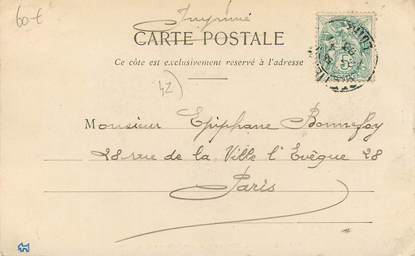 60-€
Imprimé
CARTE POSTALE
Ce côté est exclusivement reservé à l'adresse
42
Monsieur Epiphane Bonnefoy
28 rue de la Ville l'Evêque 28
Paris